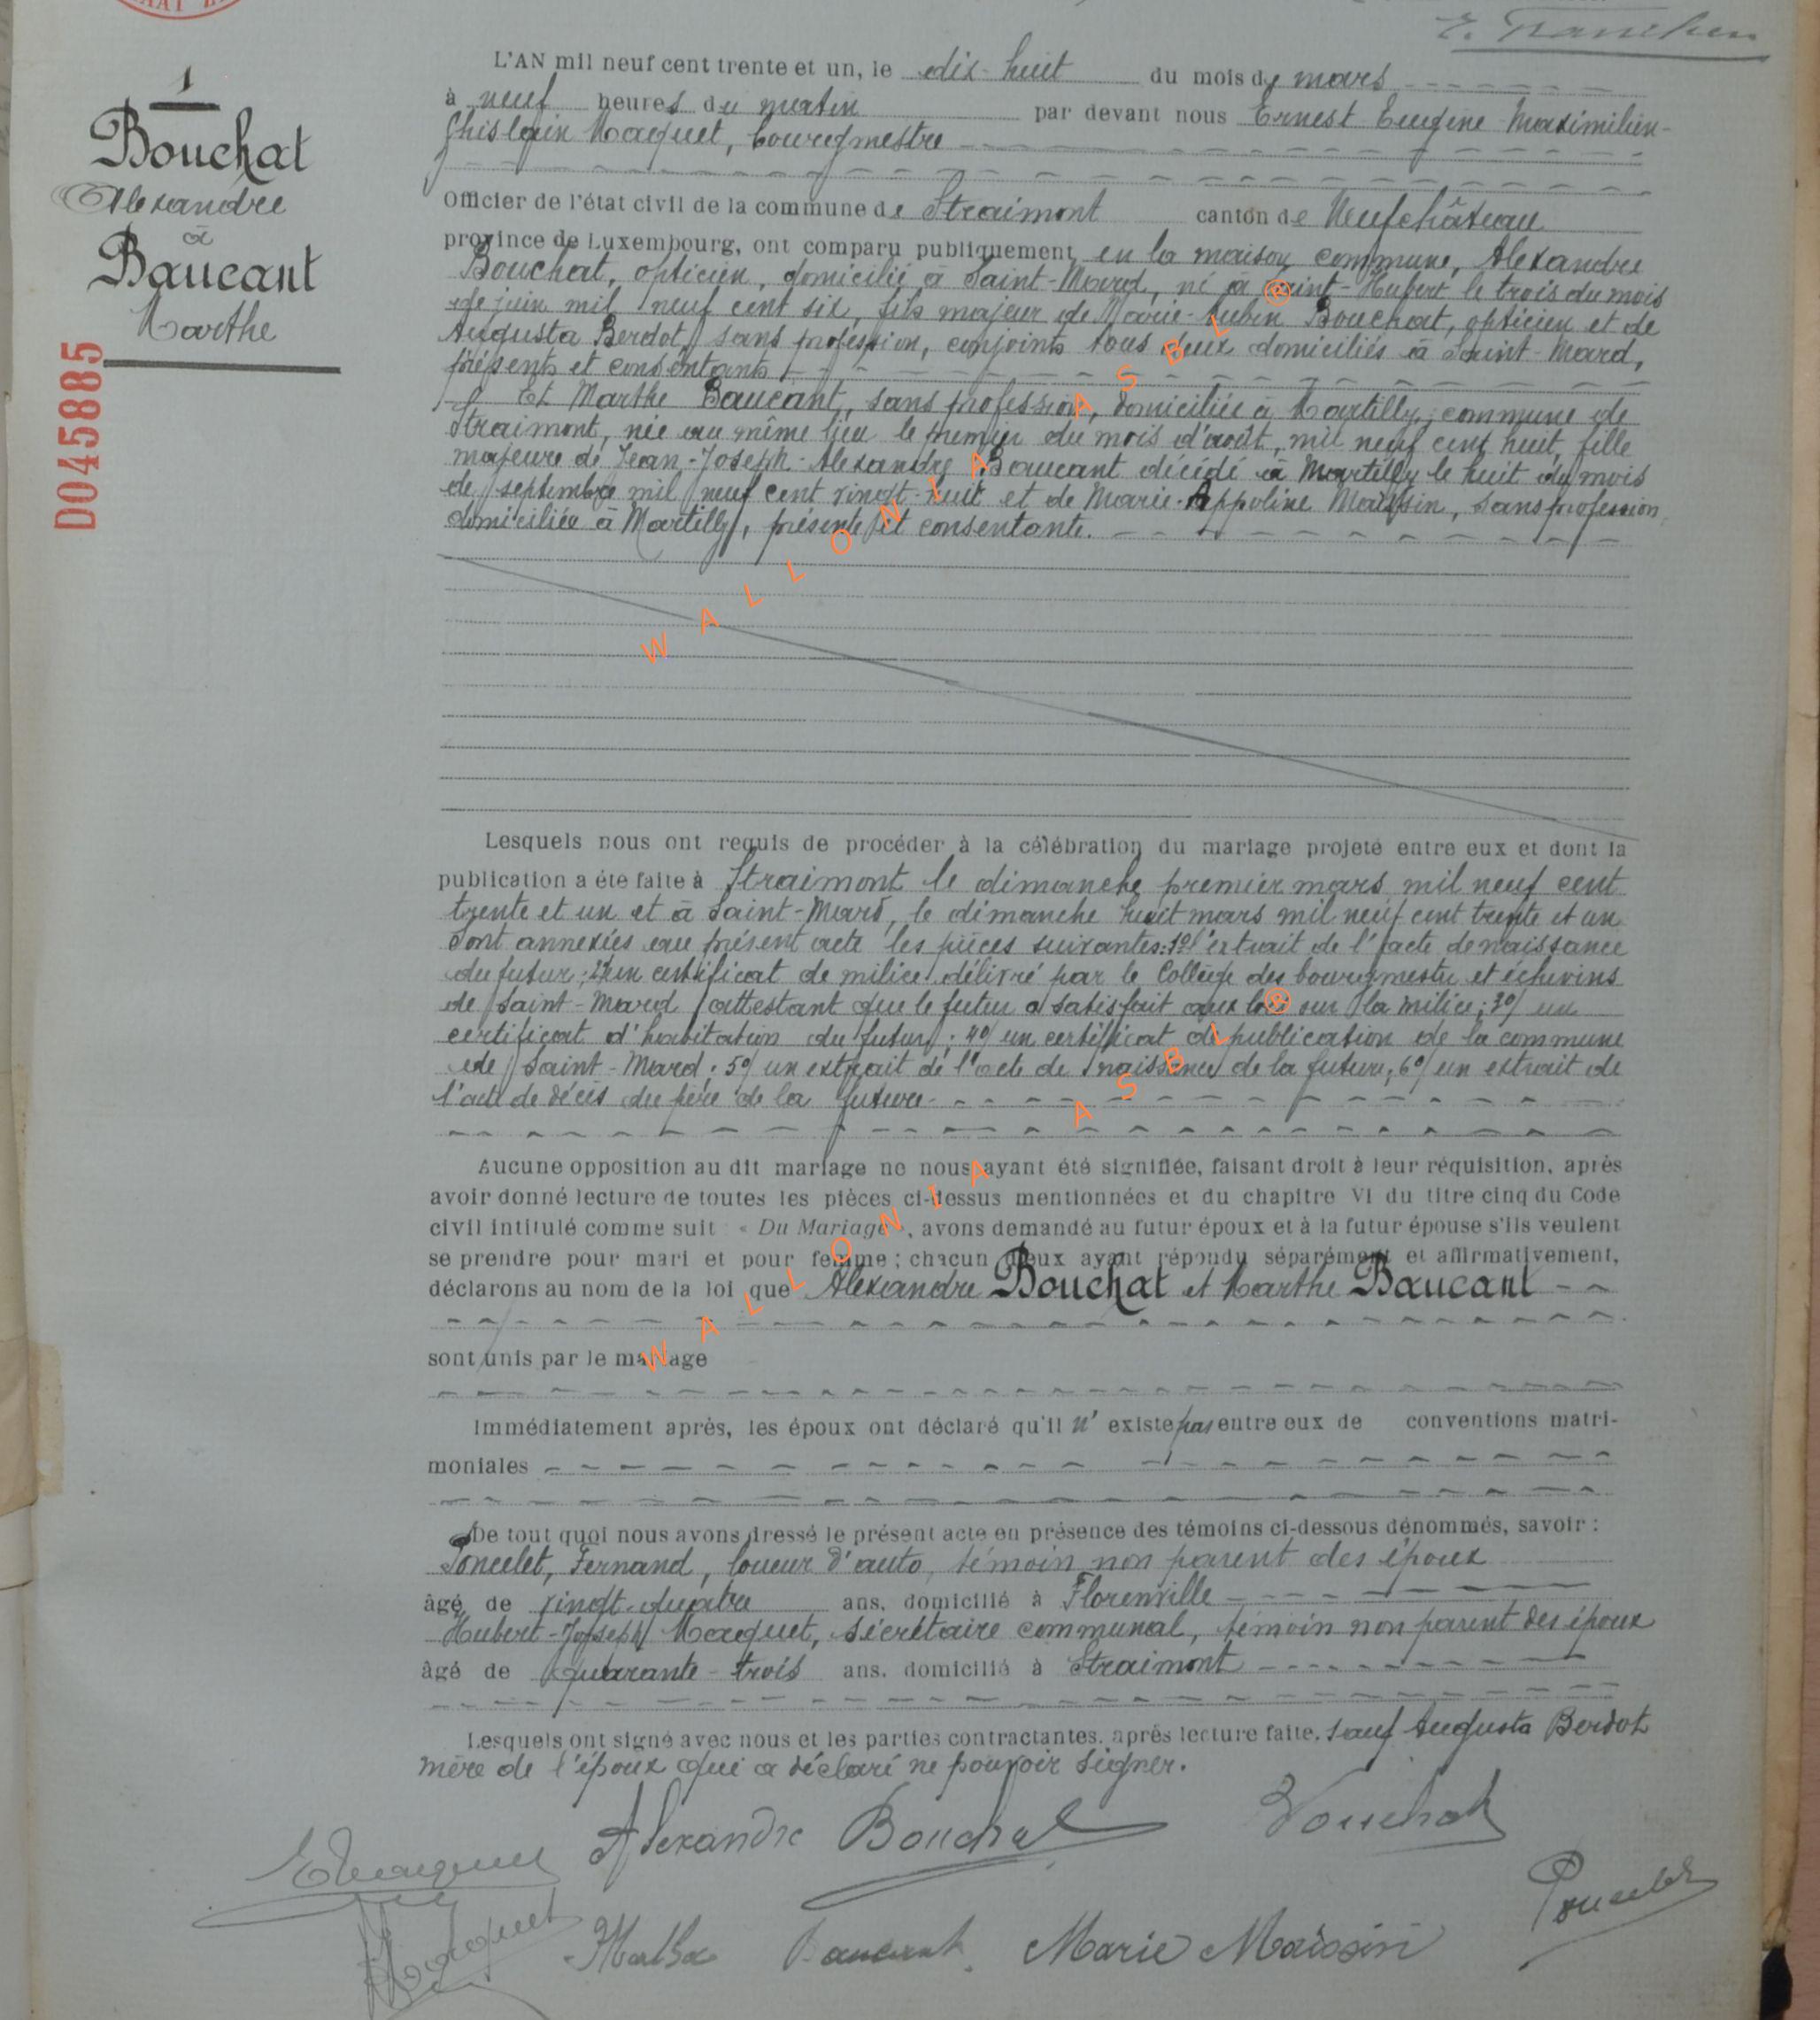 1
Bouchat
Alexandre
à
Baucant
Marthe
D045885
L'AN mil neuf cent trente et un, le dix-huit du mois de mars
à neuf heures du matin par devant nous Ernest Eugène Maximilien-
Ghislain Maquet, bourgmestre
Officier de l'état civil de la commune de Straimont canton de Neufchâteau
province de Luxembourg, ont comparu publiquement en la maison commune, Alexandre
Bouchat, opticien, domicilié à Saint-Mard, né à Saint-Hubert le trois du mois
de juin mil neuf cent six, fils majeur de Marie-Aubin Bouchat, opticien et de
Augusta Berdot, sans profession, conjoints tous deux domiciliés à Saint-Mard,
présents et consentants,
Et Marthe Baucant, sans profession, domiciliée à Martilly, commune de
Straimont, née au même lieu le premier du mois d'août, mil neuf cent huit, fille
majeure de Jean-Joseph-Alexandre Baucant décédé à Martilly le huit du mois
de septembre mil neuf cent vingt-huit et de Marie-Appoline Maissin, sans profession,
domiciliée à Martilly, présente et consentante.
Lesquels nous ont requis de procéder à la célébration du mariage projeté entre eux et dont la
publication a été faite à Straimont le dimanche premier mars mil neuf cent
trente et un et à Saint-Mard, le dimanche huit mars mil neuf cent trente et un
Sont annexées au présent acte les pièces suivantes: 1º l'extrait de l'acte de naissance
du futur; 2º un certificat de milice délivré par le Collège des bourgmestre et échevins
de Saint-Mard attestant que le futur a satisfait aux lois sur la milice; 3º un
certificat d'habitation du futur; 4º un certificat de publication de la commune
de Saint-Mard; 5º un extrait de l'acte de naissance de la future; 6º un extrait de
l'acte de décès du père de la future
Aucune opposition au dit mariage ne nous ayant été signifiée, faisant droit à leur réquisition, après
avoir donné lecture de toutes les pièces ci-dessus mentionnées et du chapitre VI du titre cinq du Code
civil intitulé comme suit : « Du Mariage », avons demandé au futur époux et à la futur épouse s'ils veulent
se prendre pour mari et pour femme ; chacun d'eux ayant répondu séparément et affirmativement,
déclarons au nom de la loi que Alexandre Bouchat et Marthe Baucant
sont unis par le mariage
Immédiatement après, les époux ont déclaré qu'il n'existe pas entre eux de conventions matri-
moniales
De tout quoi nous avons dressé le présent acte en présence des témoins ci-dessous dénommés, savoir :
Poncelet, Fernand, loueur d'auto, témoin non parent des époux
âgé de vingt-quatre ans, domicilié à Florenville
Hubert-Joseph Maquet, secrétaire communal, témoin non parent des époux
âgé de quarante-trois ans, domicilié à Straimont
Lesquels ont signé avec nous et les parties contractantes, après lecture faite, sauf Augusta Berdot
mère de l'époux qui a déclaré ne pouvoir signer.
Alexandre Bouchat Bouchat
EMaquet
Poncelet
Maquet
Marthe Baucant. Marie Maissin
WALLONIA ASBL ®
WALLONIA ASBL ®